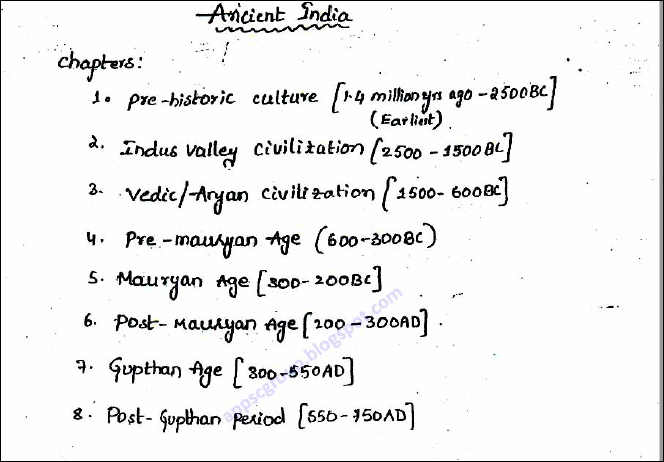 Ancient India
Chapters:
1. Pre-historic culture [1.4 million yrs ago - 2500BC]
(Earliest)
2. Indus Valley Civilization [2500 - 1500BC]
3. Vedic/Aryan Civilization [1500 - 600BC]
4. Pre-mauryan Age (600-300BC)
5. Mauryan Age [300-200BC]
6. Post-Mauryan Age [200-300AD].
7. Gupthan Age [300-550AD]
8. Post-Gupthan Period [550-750AD]
appscgroup.blogspot.com